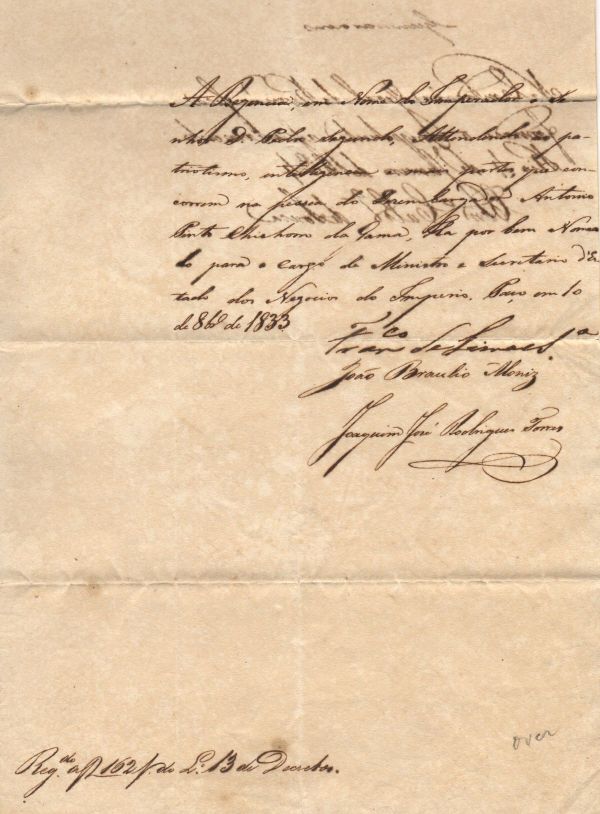 A Regencia, em Nome do Imperador o Se
nhor D. Pedro Segundo, Attendendo ao pa
triotismo, intelligencia e mais partes, que con
correm na pessoa do Dezembargador Antonio
Pinto Chichorro da Gama, Ha por bem Nomea
lo para o cargo de Ministro e Secretario d'Es
tado dos Negocios do Imperio. Paço em 10
de 8br.o de 1833
Fran.co de Lima e S.a
João Braulio Moniz
Joaquim José Rodrigues Torres
over
Reg.do a f 162 do L.o 13 de Decretos.